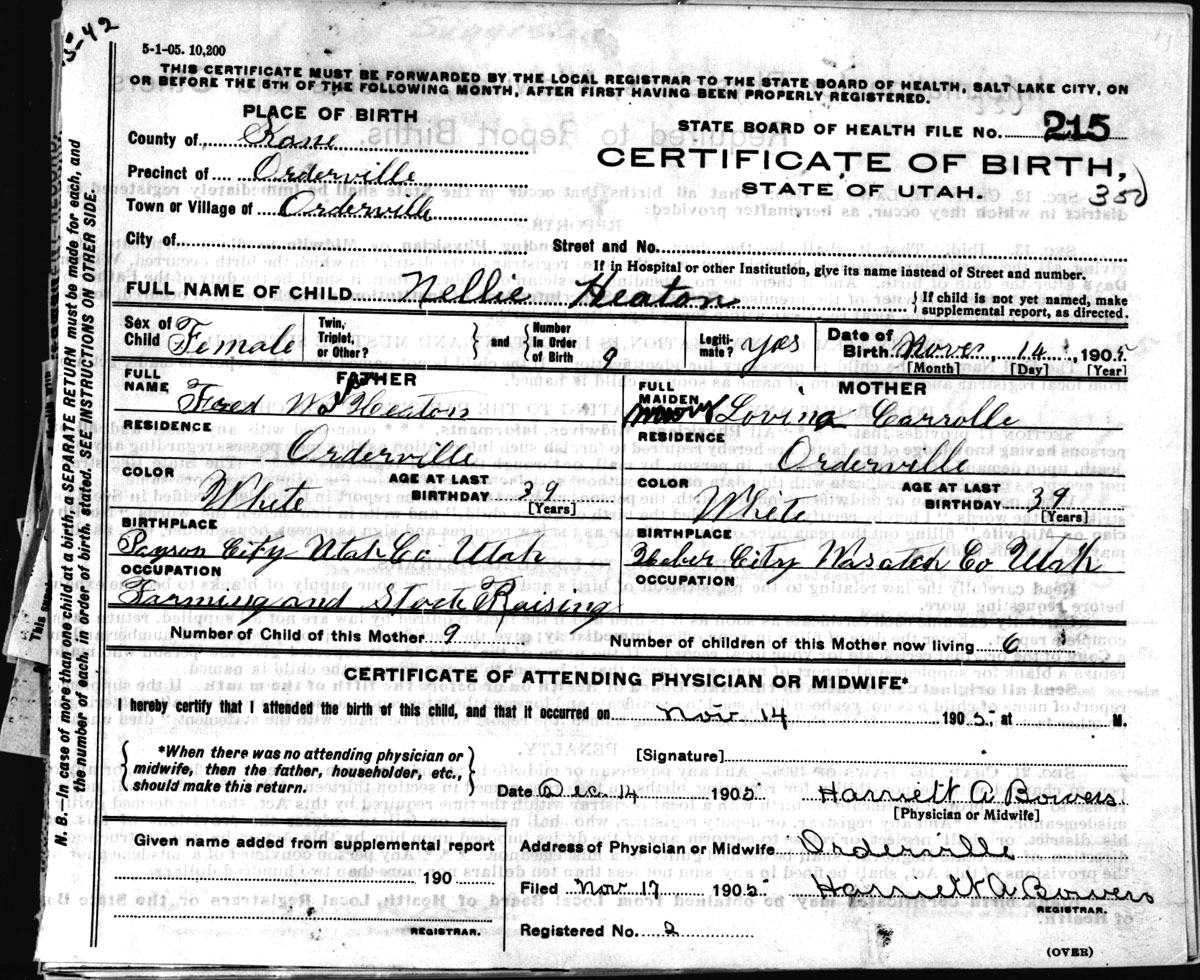 5-42
5-1-05. 10,200
THIS CERTIFICATE MUST BE FORWARDED BY THE LOCAL REGISTRAR TO THE STATE BOARD OF HEALTH, SALT LAKE CITY, ON
OR BEFORE THE 5TH OF THE FOLLOWING MONTH, AFTER FIRST HAVING BEEN PROPERLY REGISTERED.
PLACE OF BIRTH
STATE BOARD OF HEALTH FILE NO. 215
County of Kane
CERTIFICATE OF BIRTH,
Precinct of Orderville
STATE OF UTAH.
350
Town or Village of Orderville
City of
Street and No.
If in Hospital or other Institution, give its name instead of Street and number.
FULL NAME OF CHILD Nellie Heaton
{ If child is not yet named, make
supplemental report, as directed.
Sex of Child Female
Twin, Triplet, or Other?
} and { Number in Order of Birth 9
Legiti-mate? yes
Date of Birth Nover, 14, 1905
[Month] [Day] [Year]
FULL NAME
FATHER
Fred W Heaton
FULL MAIDEN
MOTHER
Lovina Carrolle
RESIDENCE
Orderville
RESIDENCE
Orderville
COLOR
White
AGE AT LAST BIRTHDAY 39
[Years]
COLOR
White
AGE AT LAST BIRTHDAY 39
[Years]
BIRTHPLACE
Payson City Utah Co Utah
BIRTHPLACE
Heber City Wasatch Co Utah
OCCUPATION
Farming and Stock Raising
OCCUPATION
Number of Child of this Mother 9
Number of children of this Mother now living 6
CERTIFICATE OF ATTENDING PHYSICIAN OR MIDWIFE*
I hereby certify that I attended the birth of this child, and that it occurred on Nov. 14 1905, at M.
{ *When there was no attending physician or
midwife, then the father, householder, etc.,
should make this return. }
[Signature]
Date Dec. 14 1905 Harriett A Bowers
[Physician or Midwife]
Given name added from supplemental report
190
REGISTRAR.
Address of Physician or Midwife Orderville
Filed Nov 17 1905 Harriett A Bowers
REGISTRAR.
Registered No. 2
(OVER)
N. B.—In case of more than one child at a birth, a SEPARATE RETURN must be made for each, and
the number of each, in order of birth, stated. SEE INSTRUCTIONS ON OTHER SIDE.